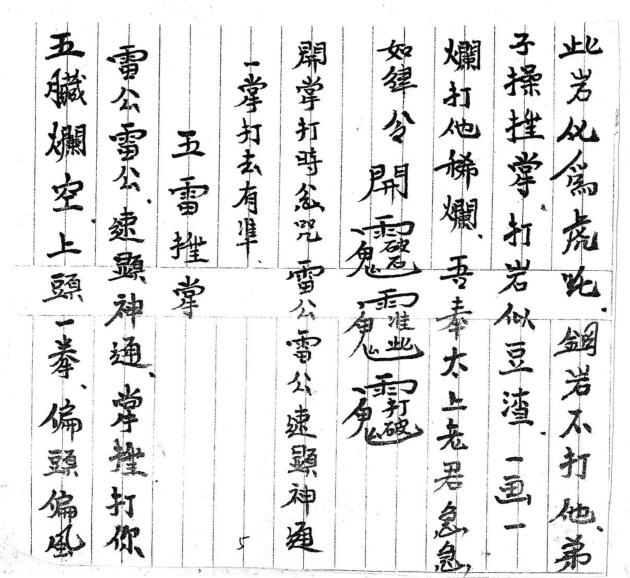 此岩化為虎吃、鋼岩不打他、弟
子操推掌、打岩似豆渣、一画一
爛打他稀爛、吾奉太上老君急急
如律令 開
開掌打時念咒 雷公雷公速顯神通
一掌打去有準、
五雷推掌
雷公雷公、速顯神通、掌推打你
五臟爛空上頭一拳、偏頭偏風
5